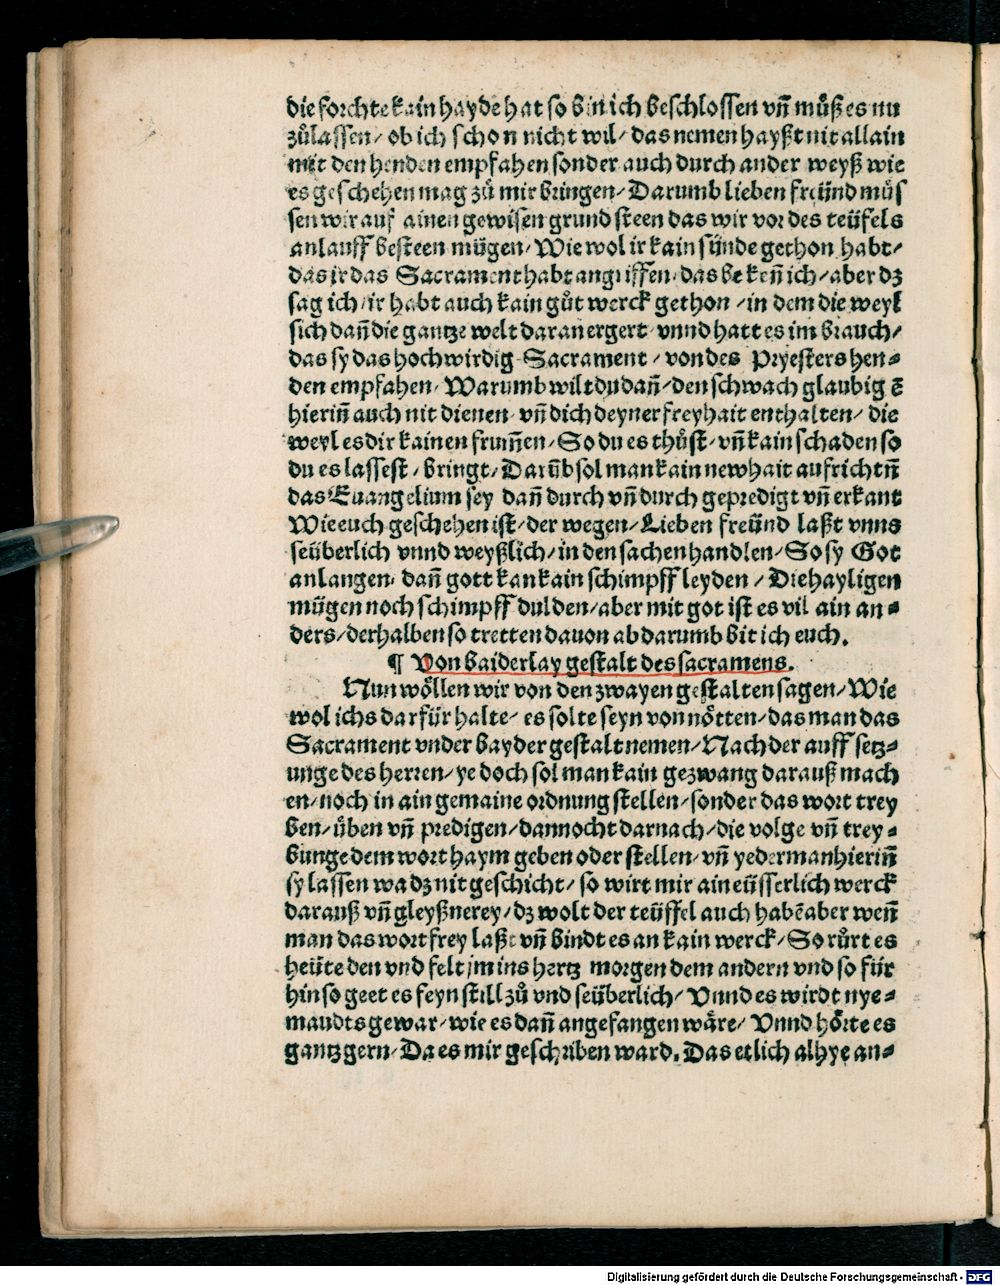 die forchte kain hayde hat so bin ich beschlossen vñ můß es nu
zůlassen / ob ich schon nicht wil / das nemen hayßt nit allain
mit den henden empfahen sonder auch durch ander weyß wie
es geschehen mag zů mir bringen / Darumb lieben freünd můs
sen wir auf ainen gewisen grund steen das wir vor des teüfels
anlauff besteen mügen / Wie wol ir kain sünde gethon habt /
das ir das Sacrament habt angriffen / das bekeñ ich / aber dz
sag ich / ir habt auch kain gůt werck gethon / in dem die weyl
sich dañ die gantze welt daran ergert vnnd hatt es im brauch /
das sy das hochwirdig Sacrament / von des Pryesters hen⸗
den empfahen / Warumb wilt du dañ / den schwach glaubig ẽ
hieriñ auch nit dienen / vñ dich deyner freyhait enthalten / die
weyl es dir kainen frum̃en / So du es thůst / vñ kain schaden so
du es lassest / bringt / Darũb sol man kain newhait aufrichtñ
das Euangelium sey dañ durch vñ durch gepredigt vñ erkant
Wie euch geschehen ist / der wegen / Lieben freünd laßt vnns
seüberlich vnnd weyßlich / in den sachen handlen / So sy Got
anlangen / dañ gott kan kain schimpff leyden / Die hayligen
mügen noch schimpff dulden / aber mit got ist es vil ain an⸗
ders / derhalben so tretten dauon ab darumb bit ich euch.
¶ Von baiderlay gestalt des sacramens.
Nun wöllen wir von den zwayen gestalten sagen / Wie
wol ichs darfür halte / es solte seyn von nötten / das man das
Sacrament vnder bayder gestalt nemen / Nach der auff setz⸗
unge des herren / ye doch sol man kain gezwang darauß mach
en / noch in ain gemaine ordnung stellen / sonder das wort trey
ben / üben vñ predigen / dannocht darnach / die volge vñ trey⸗
bunge dem wort haym geben oder stellen / vñ yederman hieriñ
sy lassen wa dz nit geschicht / so wirt mir ain eüsserlich werck
darauß vñ gleyßnerey / dz wolt der teüffel auch habẽ aber weñ
man das wort frey laßt vñ bindt es an kain werck / So růrt es
heüte den vnd felt jm ins hertz morgen dem andern vnd so für
hin so geet es feyn still zů vnd seüberlich / Vnnd es wirdt nye⸗
mandts gewar / wie es dañ angefangen wäre / Vnnd hörte es
gantz gern / Da es mir geschriben ward. Das etlich alhye an⸗
Digitalisierung gefördert durch die Deutsche Forschungsgemeinschaft - DFG